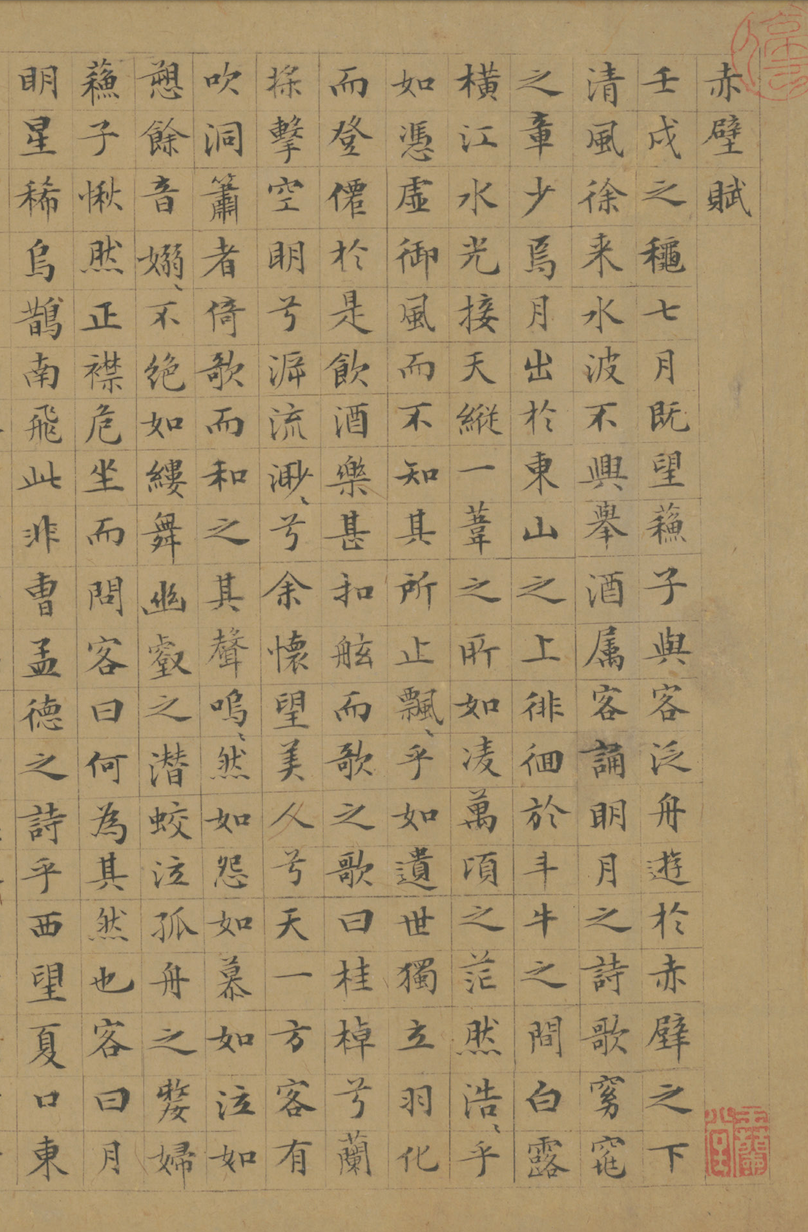 赤壁賦
壬戌之穐七月既望蘓子與客泛舟遊於赤壁之下
清風徐来水波不興舉酒属客誦明月之詩歌窈窕
之章少焉月出於東山之上徘徊於斗牛之間白露
橫江水光接天縱一葦之所如凌萬頃之茫然浩〻乎
如憑虛御風而不知其所止飄〻乎如遺世獨立羽化
而登僊於是飲酒樂甚扣舷而歌之歌曰桂棹兮蘭
擊空明兮泝流渺〻兮余懷望美人兮天一方客有
吹洞簫者倚歌而和之其聲嗚〻然如怨如慕如泣如
愬餘音嫋〻不絶如縷舞幽壑之潜蛟泣孤舟之嫠婦
蘓子愀然正襟危坐而問客曰何為其然也客曰月
明星稀烏鵲南飛此非曹孟德之詩乎西望夏口東